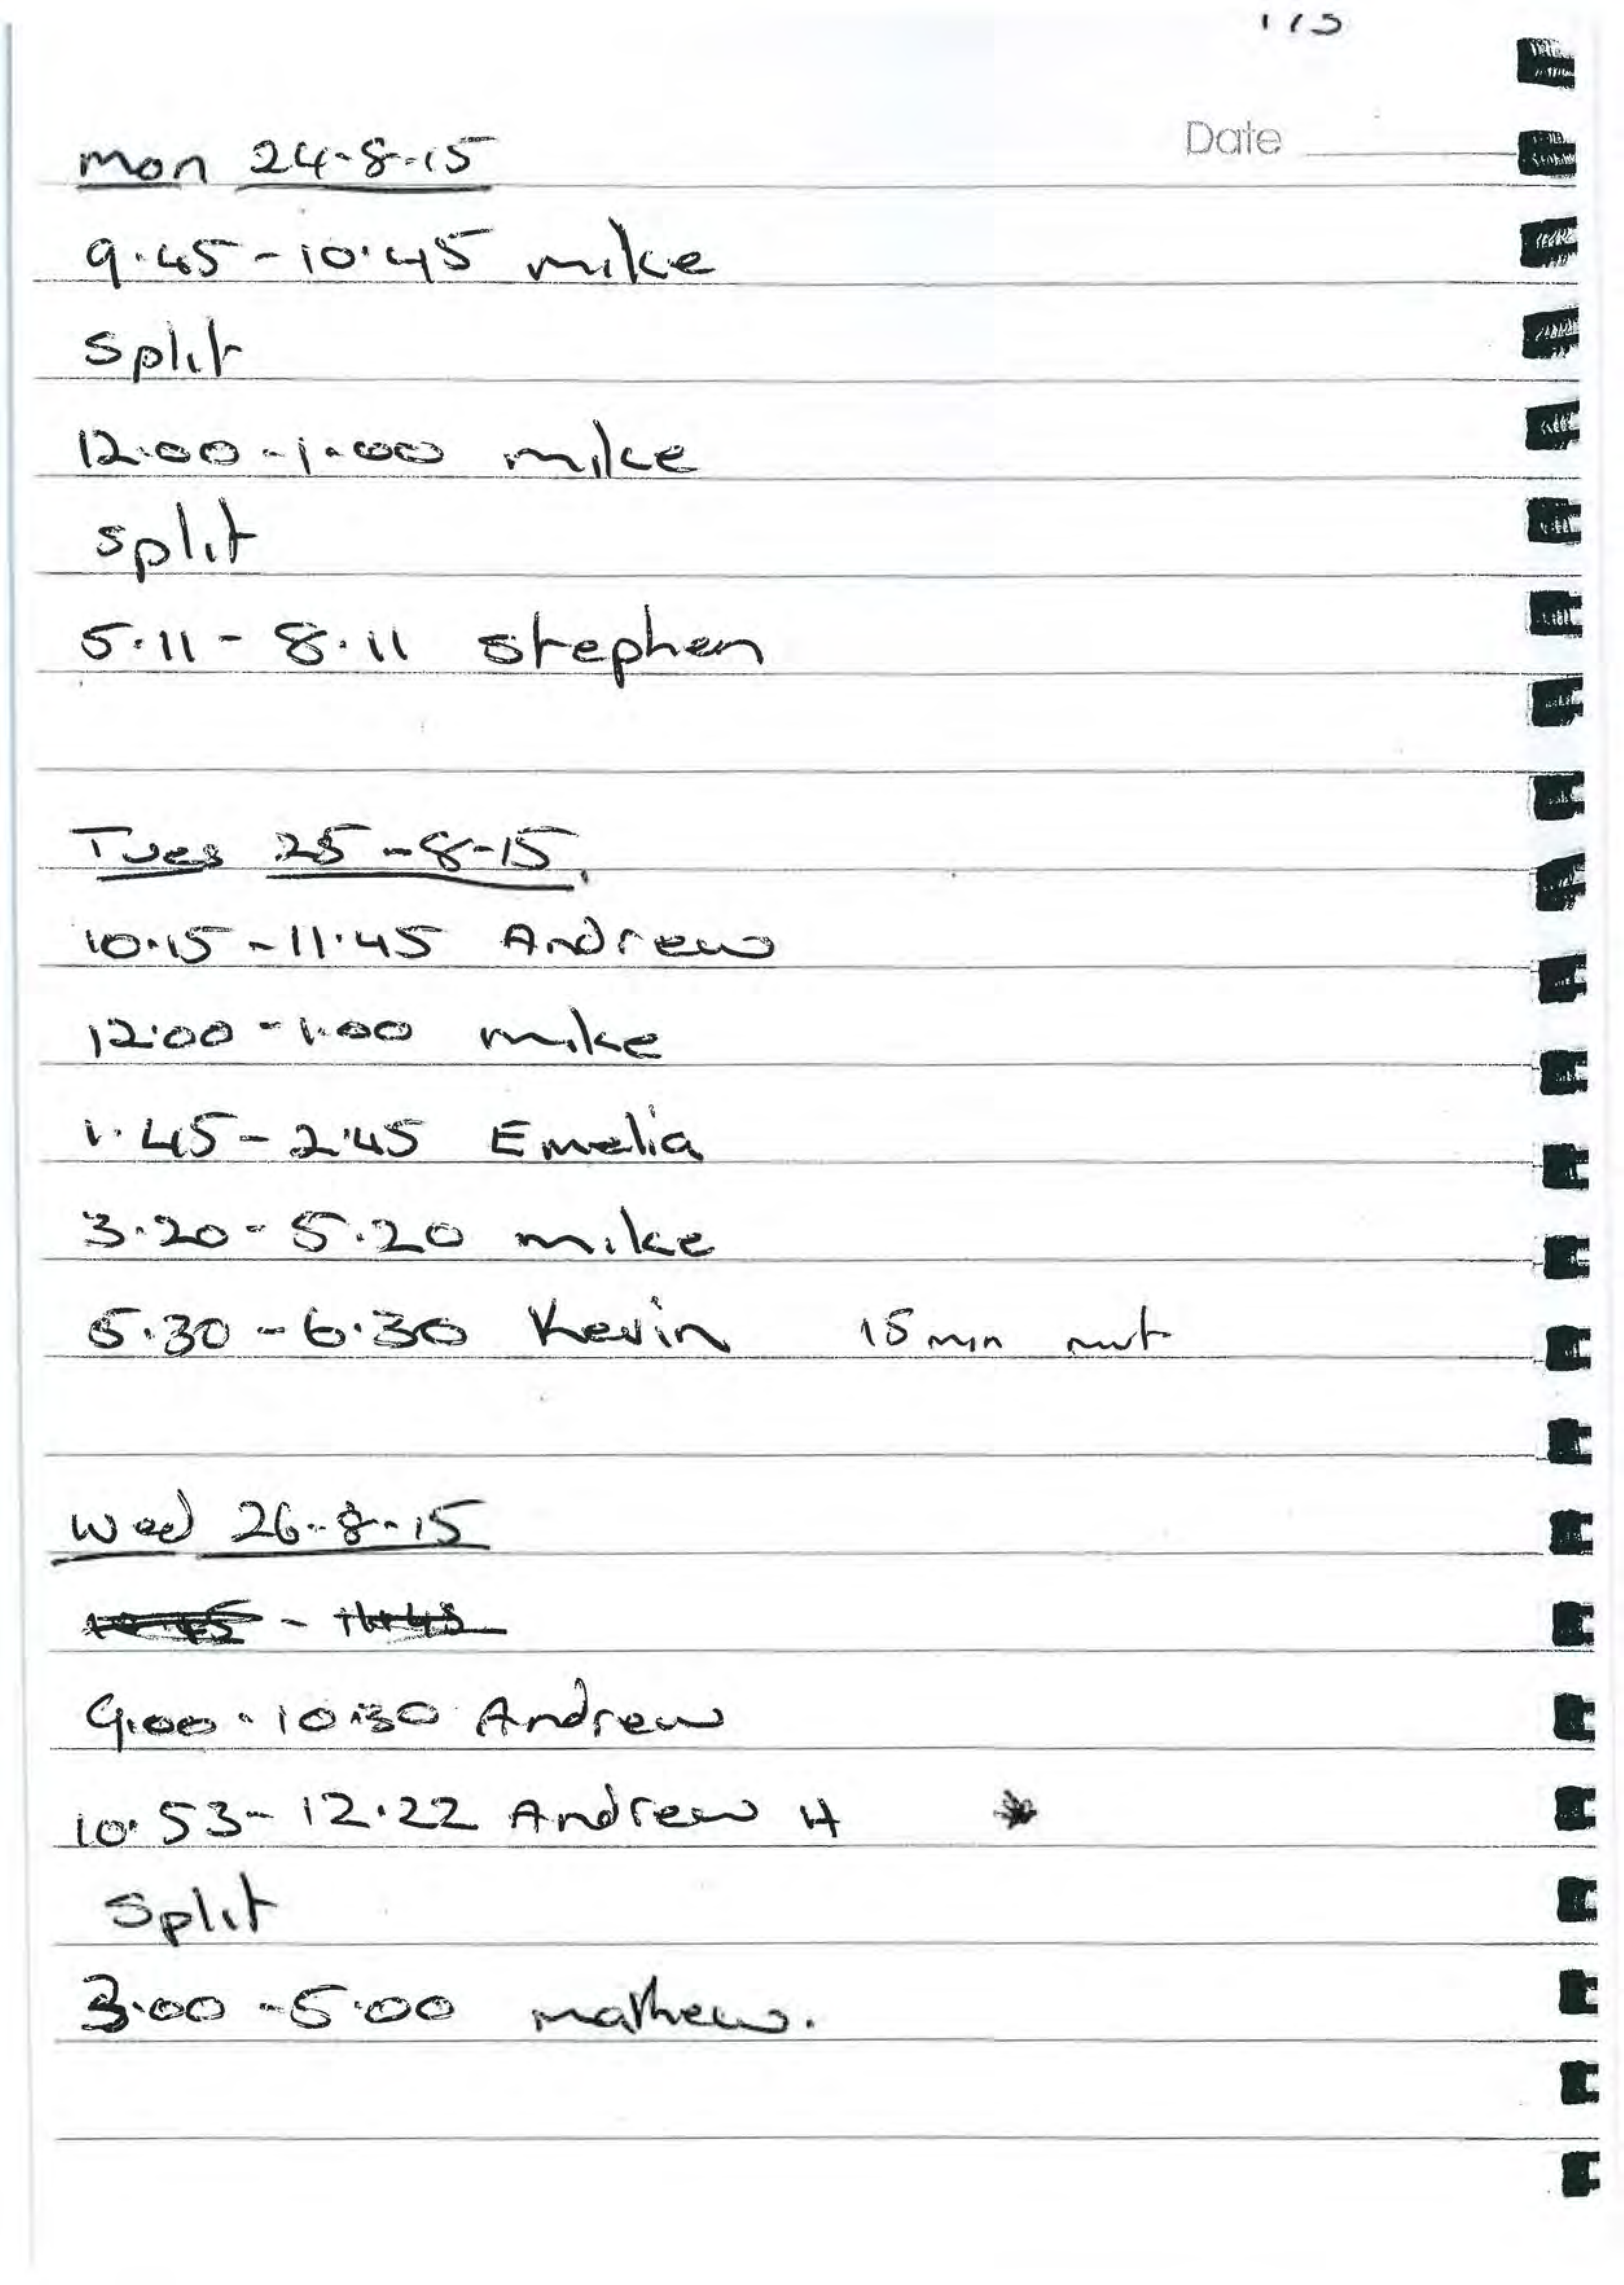 Date
Mon 24-8-15
9.45-10.45 mike
Split
12.00-1.00 mike
split
5.11-8.11 Stephen
Tues 25-8-15
10.15-11.45 Andrew
12.00-1.00 mike
1.45-2.45 Emelia
3.20-5.20 mike
5.30-6.30 Kevin 15 min
Wed 26-8-15
9.00-10.30 Andrew
10.53-12.22 Andrew H
Split
3.00-5.00 mathew.